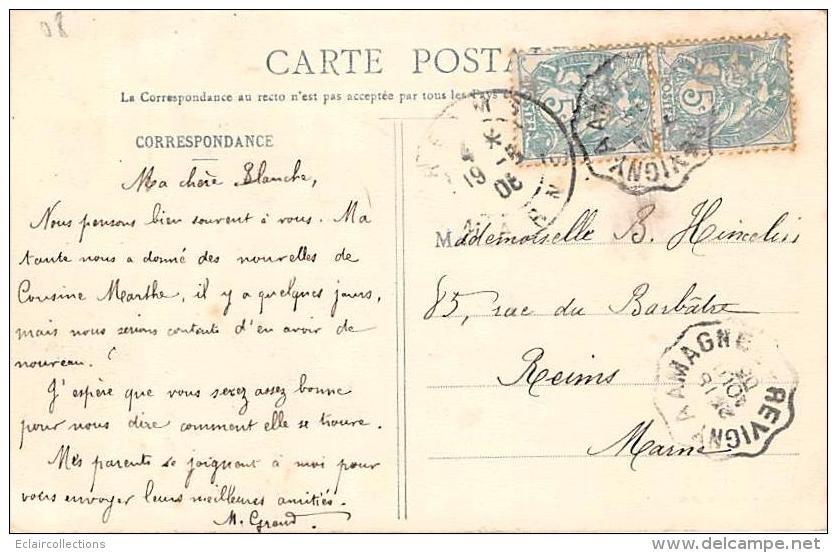 08
CARTE POSTALE
La Correspondance au recto n'est pas acceptée par tous les Pays
CORRESPONDANCE
Ma chère Blanche,
Nous pensons bien souvent à vous. Ma
tante nous a donné des nouvelles de
Cousine Marthe, il y a quelques jours,
mais nous serions contents d'en avoir de
nouveau.
J'espère que vous serez assez bonne
pour nous dire comment elle se trouve.
Mes parents se joignent à moi pour
vous envoyer leurs meilleures amitiés.
M. Grand.
Mademoiselle B. Himelin
85, rue du Barbâtre
Reims
Marne
5
5
REIMS
4
19
08
AMAGNE
REVIGNY
AMAGNE A REVIGNY
Eclaircollections
delcampe.net